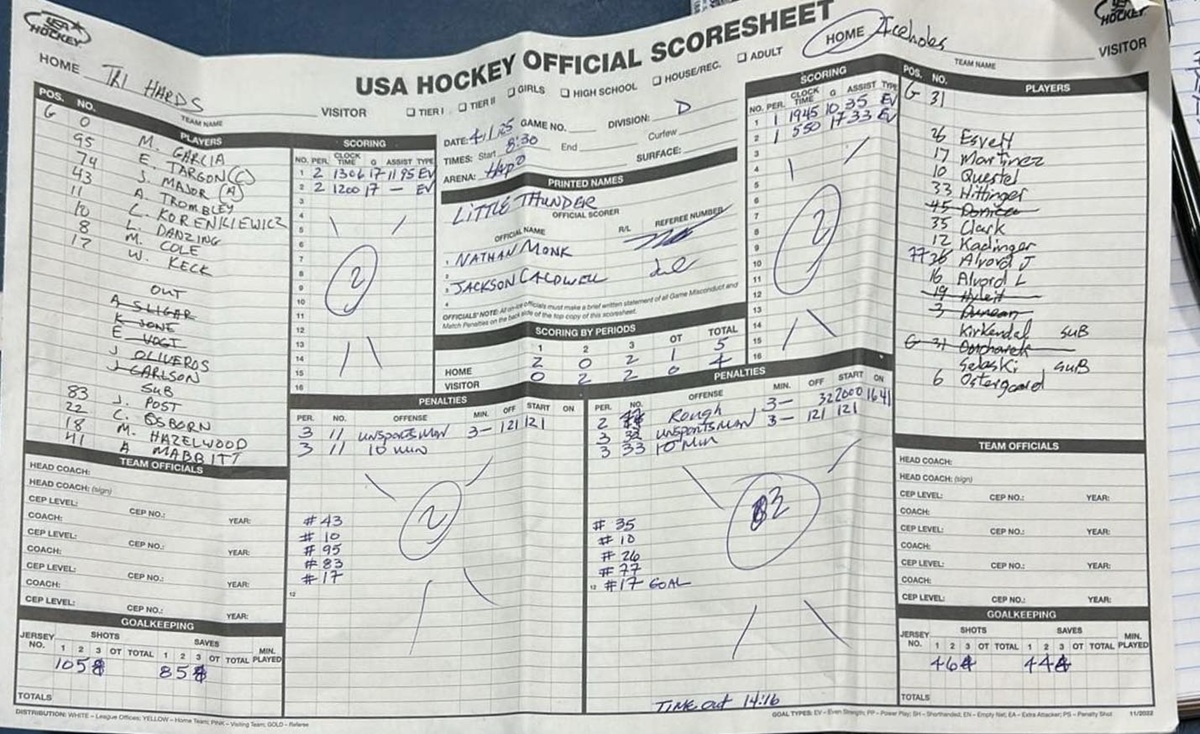 USA HOCKEY
USA HOCKEY OFFICIAL SCORESHEET
USA HOCKEY
HOME TRI HARDS VISITOR
TEAM NAME
☐ TIER I ☐ TIER II ☐ GIRLS ☐ HIGH SCHOOL ☐ HOUSE/REC. ☐ ADULT
HOME Aceholes VISITOR
TEAM NAME
POS. NO. PLAYERS
G 0 M. GARCIA
95 E. TARGON (C)
74 J. MAJOR (A)
43 A. TROMBLEY
11 C. KORENKIEWICZ
10 L. DANZING
8 M. COLE
17 W. KECK
OUT
A SLIGAR
K JONE
E VOGT
J OLIVEROS
J CARLSON
SUB
83 J. POST
22 C. OSBORN
18 M. HAZELWOOD
41 A MABBITT
SCORING
NO. PER. CLOCK TIME G ASSIST TYPE
1 2 1306 17 11 95 EV
2 2 1200 17 — EV
3
4
5
6
7
8
9
10
11
12
13
14
15
16
2
DATE: 4/1/25 GAME NO. DIVISION: D
TIMES: Start 8:30 End Curfew
ARENA: HAPO SURFACE:
PRINTED NAMES
LITTLE THUNDER
OFFICIAL SCORER
OFFICIAL NAME R/L REFEREE NUMBER
1 NATHAN MONK
2 JACKSON CALDWELL
3
4
OFFICIALS' NOTE: All on-ice officials must make a brief written statement of all Game Misconduct and
Match Penalties on the back side of the top copy of this scoresheet.
SCORING BY PERIODS
1 2 3 OT TOTAL
HOME 2 0 2 1 5
VISITOR 0 2 2 0 4
SCORING
NO. PER. CLOCK TIME G ASSIST TYPE
1 1 1945 10 35 EV
2 1 550 17 33 EV
3
4
5
6
7
8
9
10
11
12
13
14
15
16
2
POS. NO. PLAYERS
G 31
26 Esvelt
17 Martinez
10 Questel
33 Wittinger
35 Clark
12 Kadinger
77 Alvord J
16 Alvord L
19
3 Duncan
Kirkendal SUB
G 31
Selaski SUB
6 Ostergaard
PENALTIES
PER. NO. OFFENSE MIN. OFF START ON
3 11 UNSPORTSMAN 3— 121 121
3 11 10 MIN
2
#43
#10
#95
#83
#17
12
PENALTIES
PER. NO. OFFENSE MIN. OFF START ON
2 Rough 3— 32 2000 1641
3 33 UNSPORTSMAN 3— 121 121
3 33 10 MIN
#35
#10
#26
#77
12 #17 GOAL
TIME out 14:16
TEAM OFFICIALS
HEAD COACH:
HEAD COACH: (sign)
CEP LEVEL: CEP NO.: YEAR:
COACH:
CEP LEVEL: CEP NO.: YEAR:
COACH:
CEP LEVEL: CEP NO.: YEAR:
COACH:
CEP LEVEL: CEP NO.: YEAR:
GOALKEEPING
JERSEY NO. SHOTS SAVES MIN. PLAYED
1 2 3 OT TOTAL 1 2 3 OT TOTAL
10 5 8 8 5
TOTALS
TEAM OFFICIALS
HEAD COACH:
HEAD COACH: (sign)
CEP LEVEL: CEP NO.: YEAR:
COACH:
CEP LEVEL: CEP NO.: YEAR:
COACH:
CEP LEVEL: CEP NO.: YEAR:
COACH:
CEP LEVEL: CEP NO.: YEAR:
GOALKEEPING
JERSEY NO. SHOTS SAVES MIN. PLAYED
1 2 3 OT TOTAL 1 2 3 OT TOTAL
4 6 4 4
TOTALS
DISTRIBUTION: WHITE – League Offices; YELLOW – Home Team; PINK – Visiting Team; GOLD – Referee
GOAL TYPES: EV – Even Strength; PP – Power Play; SH – Shorthanded; EN – Empty Net; EA – Extra Attacker; PS – Penalty Shot 11/2022